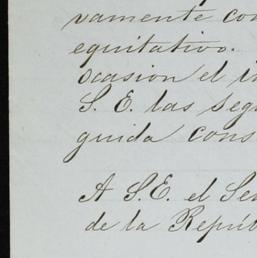 vamente con
equitativo.
ocasion el i
S. E. las segu
guida cons
A S. E. el Señ
de la Repúb